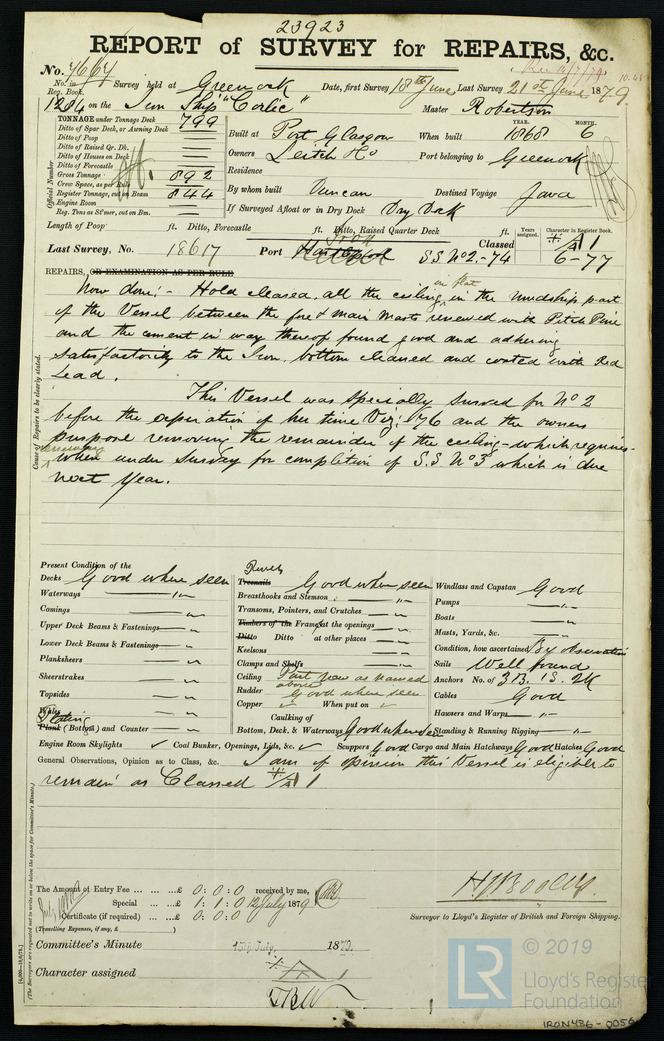 23923
REPORT of SURVEY for REPAIRS, &c.
No. 7667
No. in Reg. Book. Survey held at Greenock Date, first Survey 18th June Last Survey 21st June 1879
1284 on the Iron Ship "Corlic" Master Robertson
TONNAGE under Tonnage Deck 799
Ditto of Spar Deck, or Awning Deck
Ditto of Poop
Ditto of Raised Qr. Dk.
Ditto of Houses on Deck
Ditto of Forecastle
Gross Tonnage 892
Crew Space, as per Rule
Register Tonnage, cut on Beam 844
Engine Room
Reg. Tons as St'mer, cut on Bm.
Official Number
Built at Port Glasgow When built YEAR. 1868 MONTH. 6
Owners Leitch & Co Port belonging to Greenock
Residence
By whom built Duncan Destined Voyage Java
If Surveyed Afloat or in Dry Dock Dry Dock
Length of Poop ft. Ditto, Forecastle ft. Ditto, Raised Quarter Deck ft.
Years assigned. Character in Register Book.
Last Survey, No. 18617 Port Hartlepool Classed A 1
S.S No 2.-74 6-77
REPAIRS, OR EXAMINATION AS PER RULE
Now done:- Hold cleared, all the ceiling in flat in the midship part
of the Vessel between the fore & main masts renewed with Pitch Pine
and the cement in way thereof found good and adhering
satisfactorily to the Iron, bottom cleaned and coated with Red
Lead.
This Vessel was specially surveyed for No 2
before the expiration of her time Viz: 6/76 and the owners
purpose removing the remainder of the ceiling - which requires
renewing when under survey for completion of S.S No 3 which is due
next year.
Cause of Repairs to be clearly stated.
Present Condition of the
Decks Good where seen
Waterways "
Comings "
Upper Deck Beams & Fastenings "
Lower Deck Beams & Fastenings "
Planksheers "
Sheerstrakes "
Topsides "
Wales "
Plating
Plank (Bottom) and Counter "
Rivets
Treenails Good where seen
Breasthooks and Stemson "
Transoms, Pointers, and Crutches "
Timbers of the Frames at the openings "
Ditto Ditto at other places "
Keelsons "
Clamps and Shelfs "
Ceiling Part new as named above
Rudder Good where seen
Copper ✓ When put on ✓
Caulking of
Bottom, Deck, & Waterways Good where seen
Windlass and Capstan Good
Pumps "
Boats "
Masts, Yards, &c. "
Condition, how ascertained By observation
Sails Well found
Anchors No. of 3B. 1S. 2K
Cables Good
Hawsers and Warps "
Standing & Running Rigging "
Engine Room Skylights ✓ Coal Bunker, Openings, Lids, &c. ✓ Scuppers Good Cargo and Main Hatchways Good Hatches Good
General Observations, Opinion as to Class, &c. I am of opinion this Vessel is eligible to
remain as Classed A 1
The Amount of Entry Fee ... ... ...£ 0:0:0 received by me,
Special ... ...£ 1:1:0 12 July 1879
Certificate (if required) ... ...£ 0:0:0
(Travelling Expenses, if any, £ )
Surveyor to Lloyd's Register of British and Foreign Shipping.
Committee's Minute 15th July, 1879.
Character assigned A 1
(The Surveyors are requested not to write on or below the space for Committee's Minute.)
LR
© 2019
Lloyd's Register
Foundation
IRON486-0056